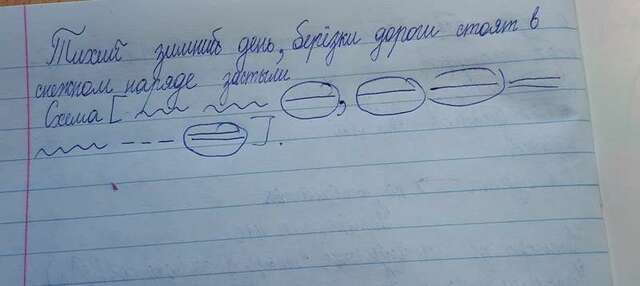 Тихий зимний день, берёзки дороги стоят в
снежном наряде застыли
Схема [
].